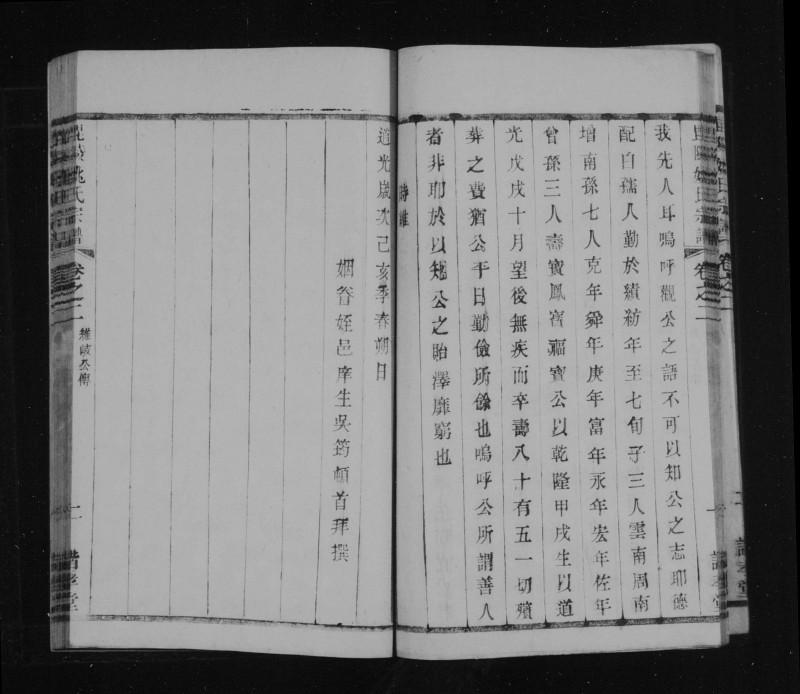 我先人耳嗚呼觀公之語不可以知公之志耶德
配白孺人勤於績紡年至七旬子三人雲南周南
增南孫七人克年舜年庚年富年永年宏年佐年
曾孫三人壽寶鳳寶福寶公以乾隆甲戌生以道
光戊戌十月望後無疾而卒壽八十有五一切殯
葬之費猶公平日勤儉所餘也嗚呼公所謂善人
者非耶於以知公之貽澤靡窮也
時維
道光歲次己亥季春朔日
姻眷姪邑庠生吳筠頓首拜撰
姚氏宗譜
卷之二
二